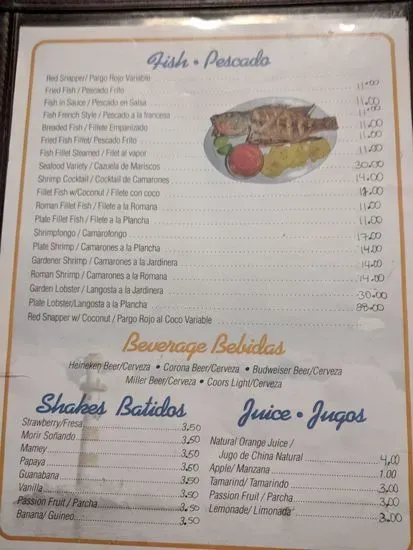 Fish • Pescado
Red Snapper/ Pargo Rojo Variable
Fried Fish / Pescado Frito 11.00
Fish in Sauce / Pescado en Salsa 11.00
Fish French Style / Pescado a la francesa 11.00
Breaded Fish / Fillete Empanizado 11.00
Fried Fish Fillet/ Pescado Frito 11.00
Fish Fillet Steamed / Filet al vapor 11.00
Seafood Variety / Cazuela de Mariscos 30.00
Shrimp Cocktail / Cocktail de Camarones 14.00
Fillet Fish w/Coconut / Filete con coco
Roman Fillet Fish / Filete a la Romana 11.00
Plate Fillet Fish / Filete a la Plancha 11.00
Shrimpfongo / Camarofongo 17.00
Plate Shrimp / Camarones a la Plancha 14.00
Gardener Shrimp / Camarones a la Jardinera 14.00
Roman Shrimp / Camarones a la Romana 14.00
Garden Lobster / Langosta a la Jardinera 30.00
Plate Lobster/Langosta a la Plancha
Red Snapper w/ Coconut / Pargo Rojo al Coco Variable
Beverage Bebidas
Heineken Beer/Cerveza • Corona Beer/Cerveza • Budweiser Beer/Cerveza
Miller Beer/Cerveza • Coors Light/Cerveza
Shakes Batidos
Strawberry/Fresa 3.50
Morir Soñando 3.50
Mamey 3.50
Papaya 3.50
Guanabana 3.50
Vanilla 3.50
Passion Fruit / Parcha 3.50
Banana/ Guineo 3.50
Juice • Jugos
Natural Orange Juice /
Jugo de China Natural 4.00
Apple/ Manzana 1.00
Tamarind/ Tamarindo 3.00
Passion Fruit / Parcha 3.00
Lemonade/ Limonada 3.00